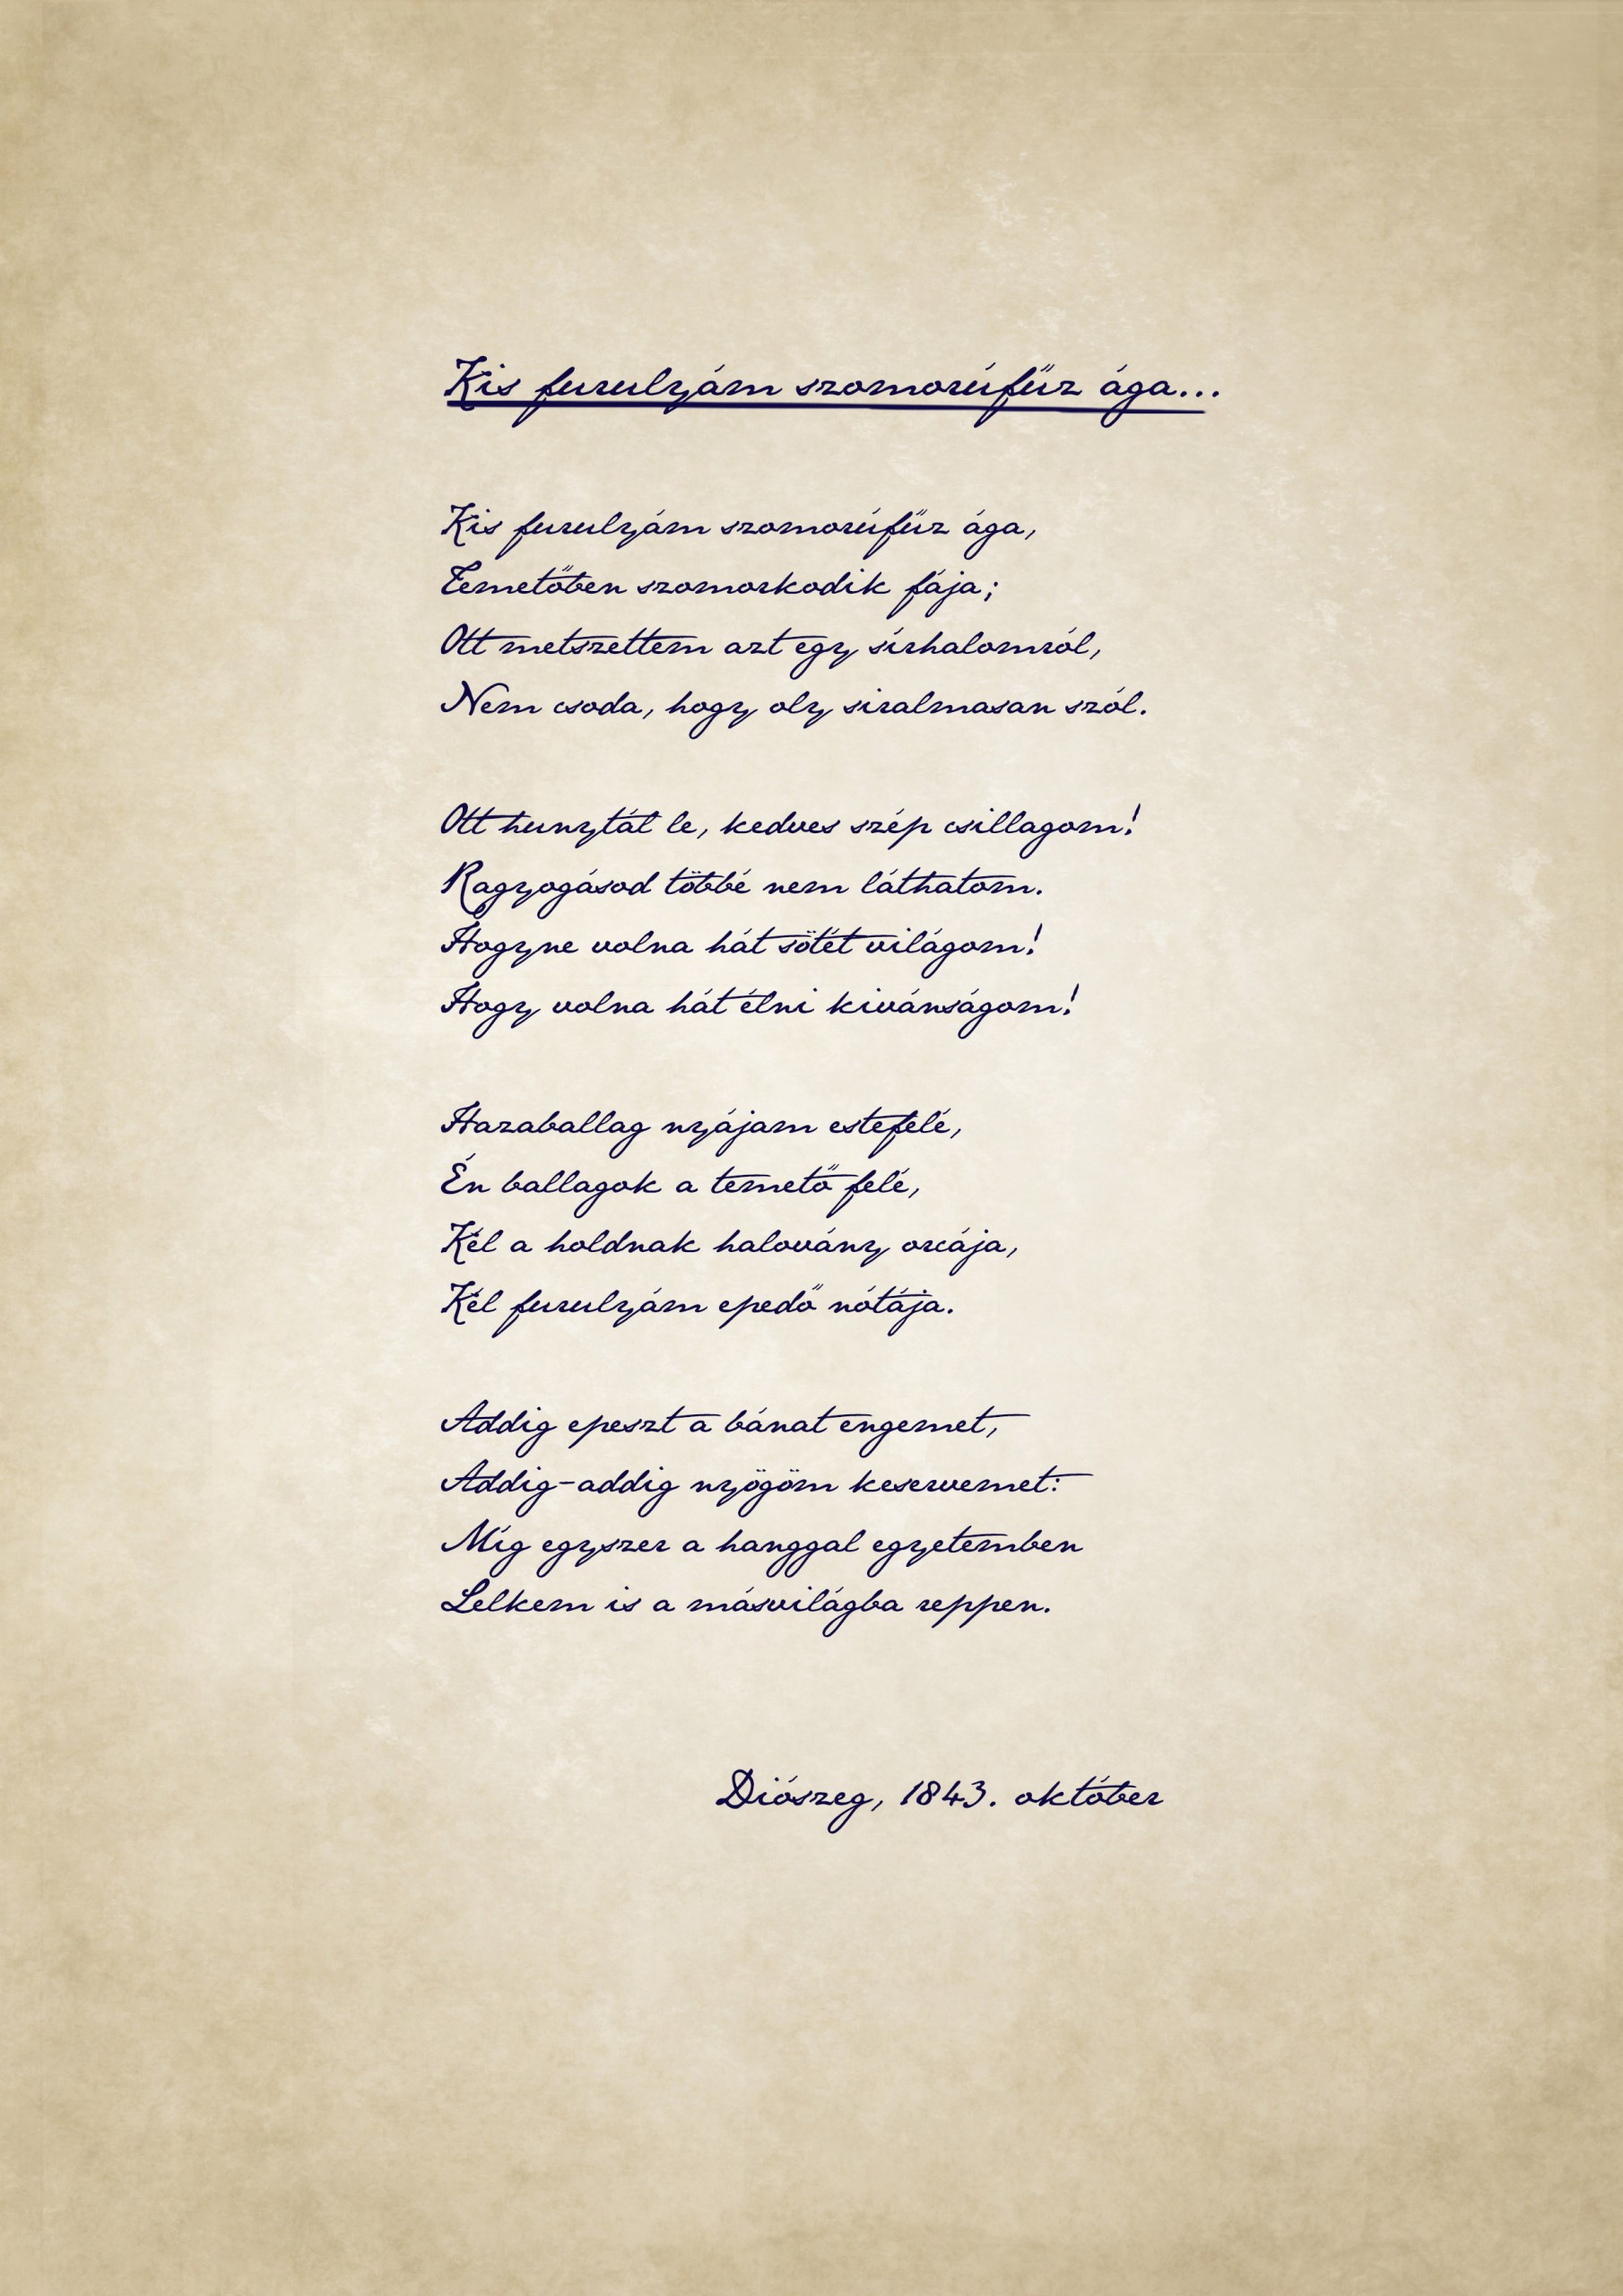 Kis furulyám szomorúfűz ága...
Kis furulyám szomorúfűz ága,
Temetőben szomorkodik fája;
Ott metszettem azt egy sírhalomról,
Nem csoda, hogy oly siralmasan szól.
Ott hunytál le, kedves szép csillagom!
Ragyogásod többé nem láthatom.
Hogyne volna hát sötét világom!
Hogy volna hát élni kivánságom!
Hazaballag nyájam estefelé,
Én ballagok a temető felé,
Kél a holdnak halovány orcája,
Kél furulyám epedő nótája.
Addig epeszt a bánat engemet,
Addig-addig nyögöm keservemet:
Míg egyszer a hanggal egyetemben
Lelkem is a másvilágba reppen.
Diószeg, 1843. október